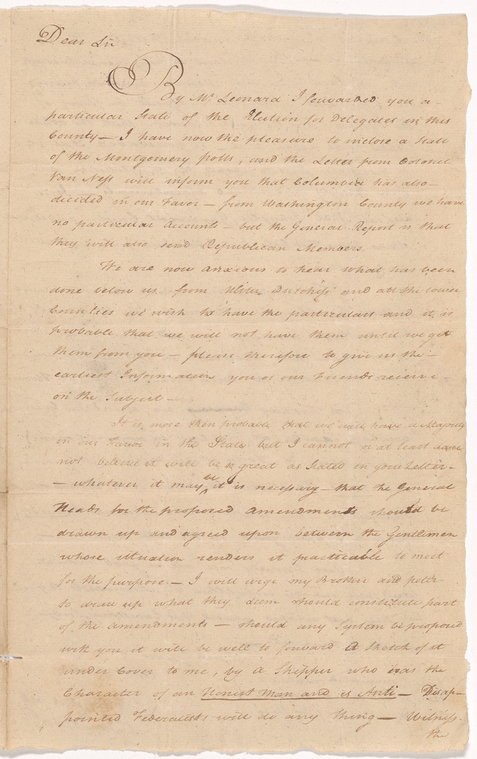 Dear Sir
By Mr Leonard I forwarded you a
particular State of the Election for Delegates in this
County — I have now the pleasure to inclose a State
of the Montgomery polls, and the Letter from Colonel
Van Ness will inform you that Columbia has also
decided in our Favor — from Washington County we have
no particular Accounts — but the General Report is that
they will also send Republican Members.
We are now anxious to hear what has been
done below us from Ulster Dutchess and all the lower
Counties we wish to have the particulars and it is
probable that we will not have them until we get
them from you — please therefore to give us the
earliest Information you or our Friends receive
on the Subject —
It is more than probable that we will have a Majority
in our Favor in the State but I cannot or at least dare
not believe it will be so great as Stated in your Letter
— whatever it may be, it is necessary that the General
Heads for the proposed amendments should be
drawn up and agreed upon between the Gentlemen
whose situation renders it practicable to meet
for the purpose — I will urge my Brother and
to draw up what they deem should constitute part
of the amendments — should any System be proposed
with you it will be well to forward a Sketch of it
under Cover to me, by a Skipper who has the
Character of an Honest Man and is Anti — Disap-
pointed Federalists will do any thing — Witness